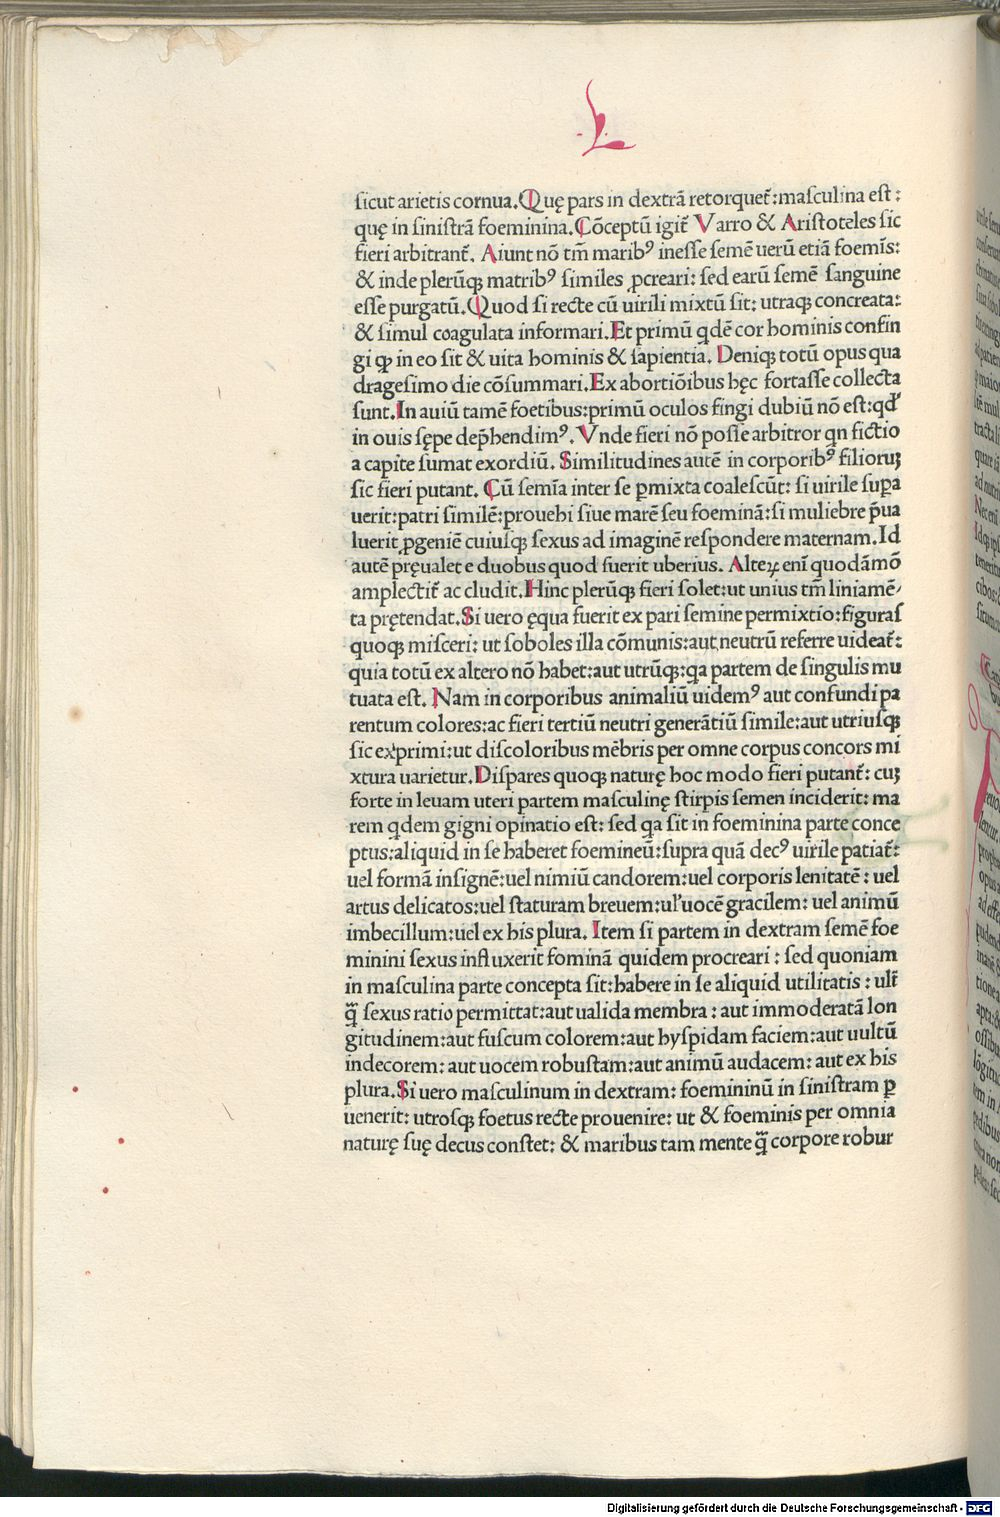 .L.
sicut arietis cornua. Quę pars in dextrā retorquet̄: masculina est:
quę in sinistrā foeminina. Cōceptū igit̄ Varro & Aristoteles sic
fieri arbitrant̄. Aiunt nō tm̄ maribꝰ inesse semē uerū etiā foemīs:
& inde plerūqꝫ matribꝰ similes ꝓcreari: sed earū semē sanguine
esse purgatū. Quod si recte cū uirili mixtū sit: utraqꝫ concreata:
& simul coagulata informari. Et primū qdē cor hominis confin
gi ꝙ in eo sit & uita hominis & sapientia. Deniqꝫ totū opus qua
dragesimo die cōsummari. Ex abortiōibus hęc fortasse collecta
sunt. In auiū tamē foetibus: primū oculos fingi dubiū nō est: qd̕
in ouis sępe dep̄hendimꝰ. Vnde fieri nō posse arbitror qn fictio
a capite sumat exordiū. Similitudines autē in corporibꝰ filioruꝫ
sic fieri putant. Cū semīa inter se ꝑmixta coalescūt: si uirile suꝑa
uerit: patri similē: prouehi siue marē seu foeminā: si muliebre p̄ua
luerit ꝓgeniē cuiusqꝫ sexus ad imaginē respondere maternam. Id
autē pręualet e duobus quod fuerit uberius. Alteꝝ enī quodāmō
amplectit̄ ac cludit. Hinc plerūqꝫ fieri solet: ut unius tm̄ liniamē/
ta prętendat. Si uero ęqua fuerit ex pari semine permixtio: figuras
quoqꝫ misceri: ut soboles illa cōmunis: aut neutrū referre uideat̄:
quia totū ex altero nō habet: aut utrūqꝫ: qa partem de singulis mu
tuata est. Nam in corporibus animaliū uidemꝰ aut confundi pa
rentum colores: ac fieri tertiū neutri generātiū simile: aut utriusqꝫ
sic exprimi: ut discoloribus mēbris per omne corpus concors mi
xtura uarietur. Dispares quoqꝫ naturę hoc modo fieri putant̄: cuꝫ
forte in leuam uteri partem masculinę stirpis semen inciderit: ma
rem qdem gigni opinatio est: sed qa sit in foeminina parte conce
ptus: aliquid in se haberet foemineū: supra quā decꝰ uirile patiat̄:
uel formā insignē: uel nimiū candorem: uel corporis lenitatē: uel
artus delicatos: uel staturam breuem: ul̕ uocē gracilem: uel animū
imbecillum: uel ex his plura. Item si partem in dextram semē foe
minini sexus influxerit fominā quidem procreari: sed quoniam
in masculina parte concepta sit: habere in se aliquid utilitatis: ult̄
q̄ sexus ratio permittat: aut ualida membra: aut immoderatā lon
gitudinem: aut fuscum colorem: aut hyspidam faciem: aut uultū
indecorem: aut uocem robustam: aut animū audacem: aut ex his
plura. Si uero masculinum in dextram: foemininū in sinistram ꝑ
uenerit: utrosqꝫ foetus recte prouenire: ut & foeminis per omnia
naturę suę decus constet: & maribus tam mente q̄ corpore robur
Digitalisierung gefördert durch die Deutsche Forschungsgemeinschaft - DFG